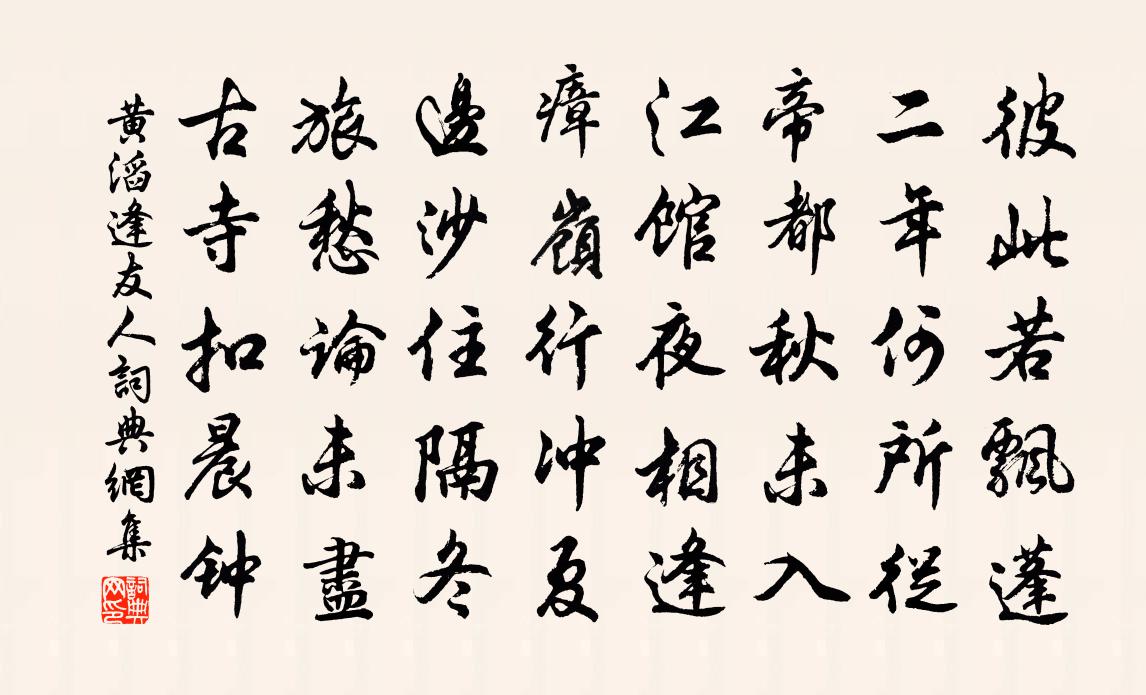 彼此若飄蓬
二年何所從
帝都秋未入
江館夜相逢
瘴嶺行冲夏
邊沙住隔冬
旅愁論未盡
古寺扣晨钟
黃滔逢友人詞典網集
詞典網印